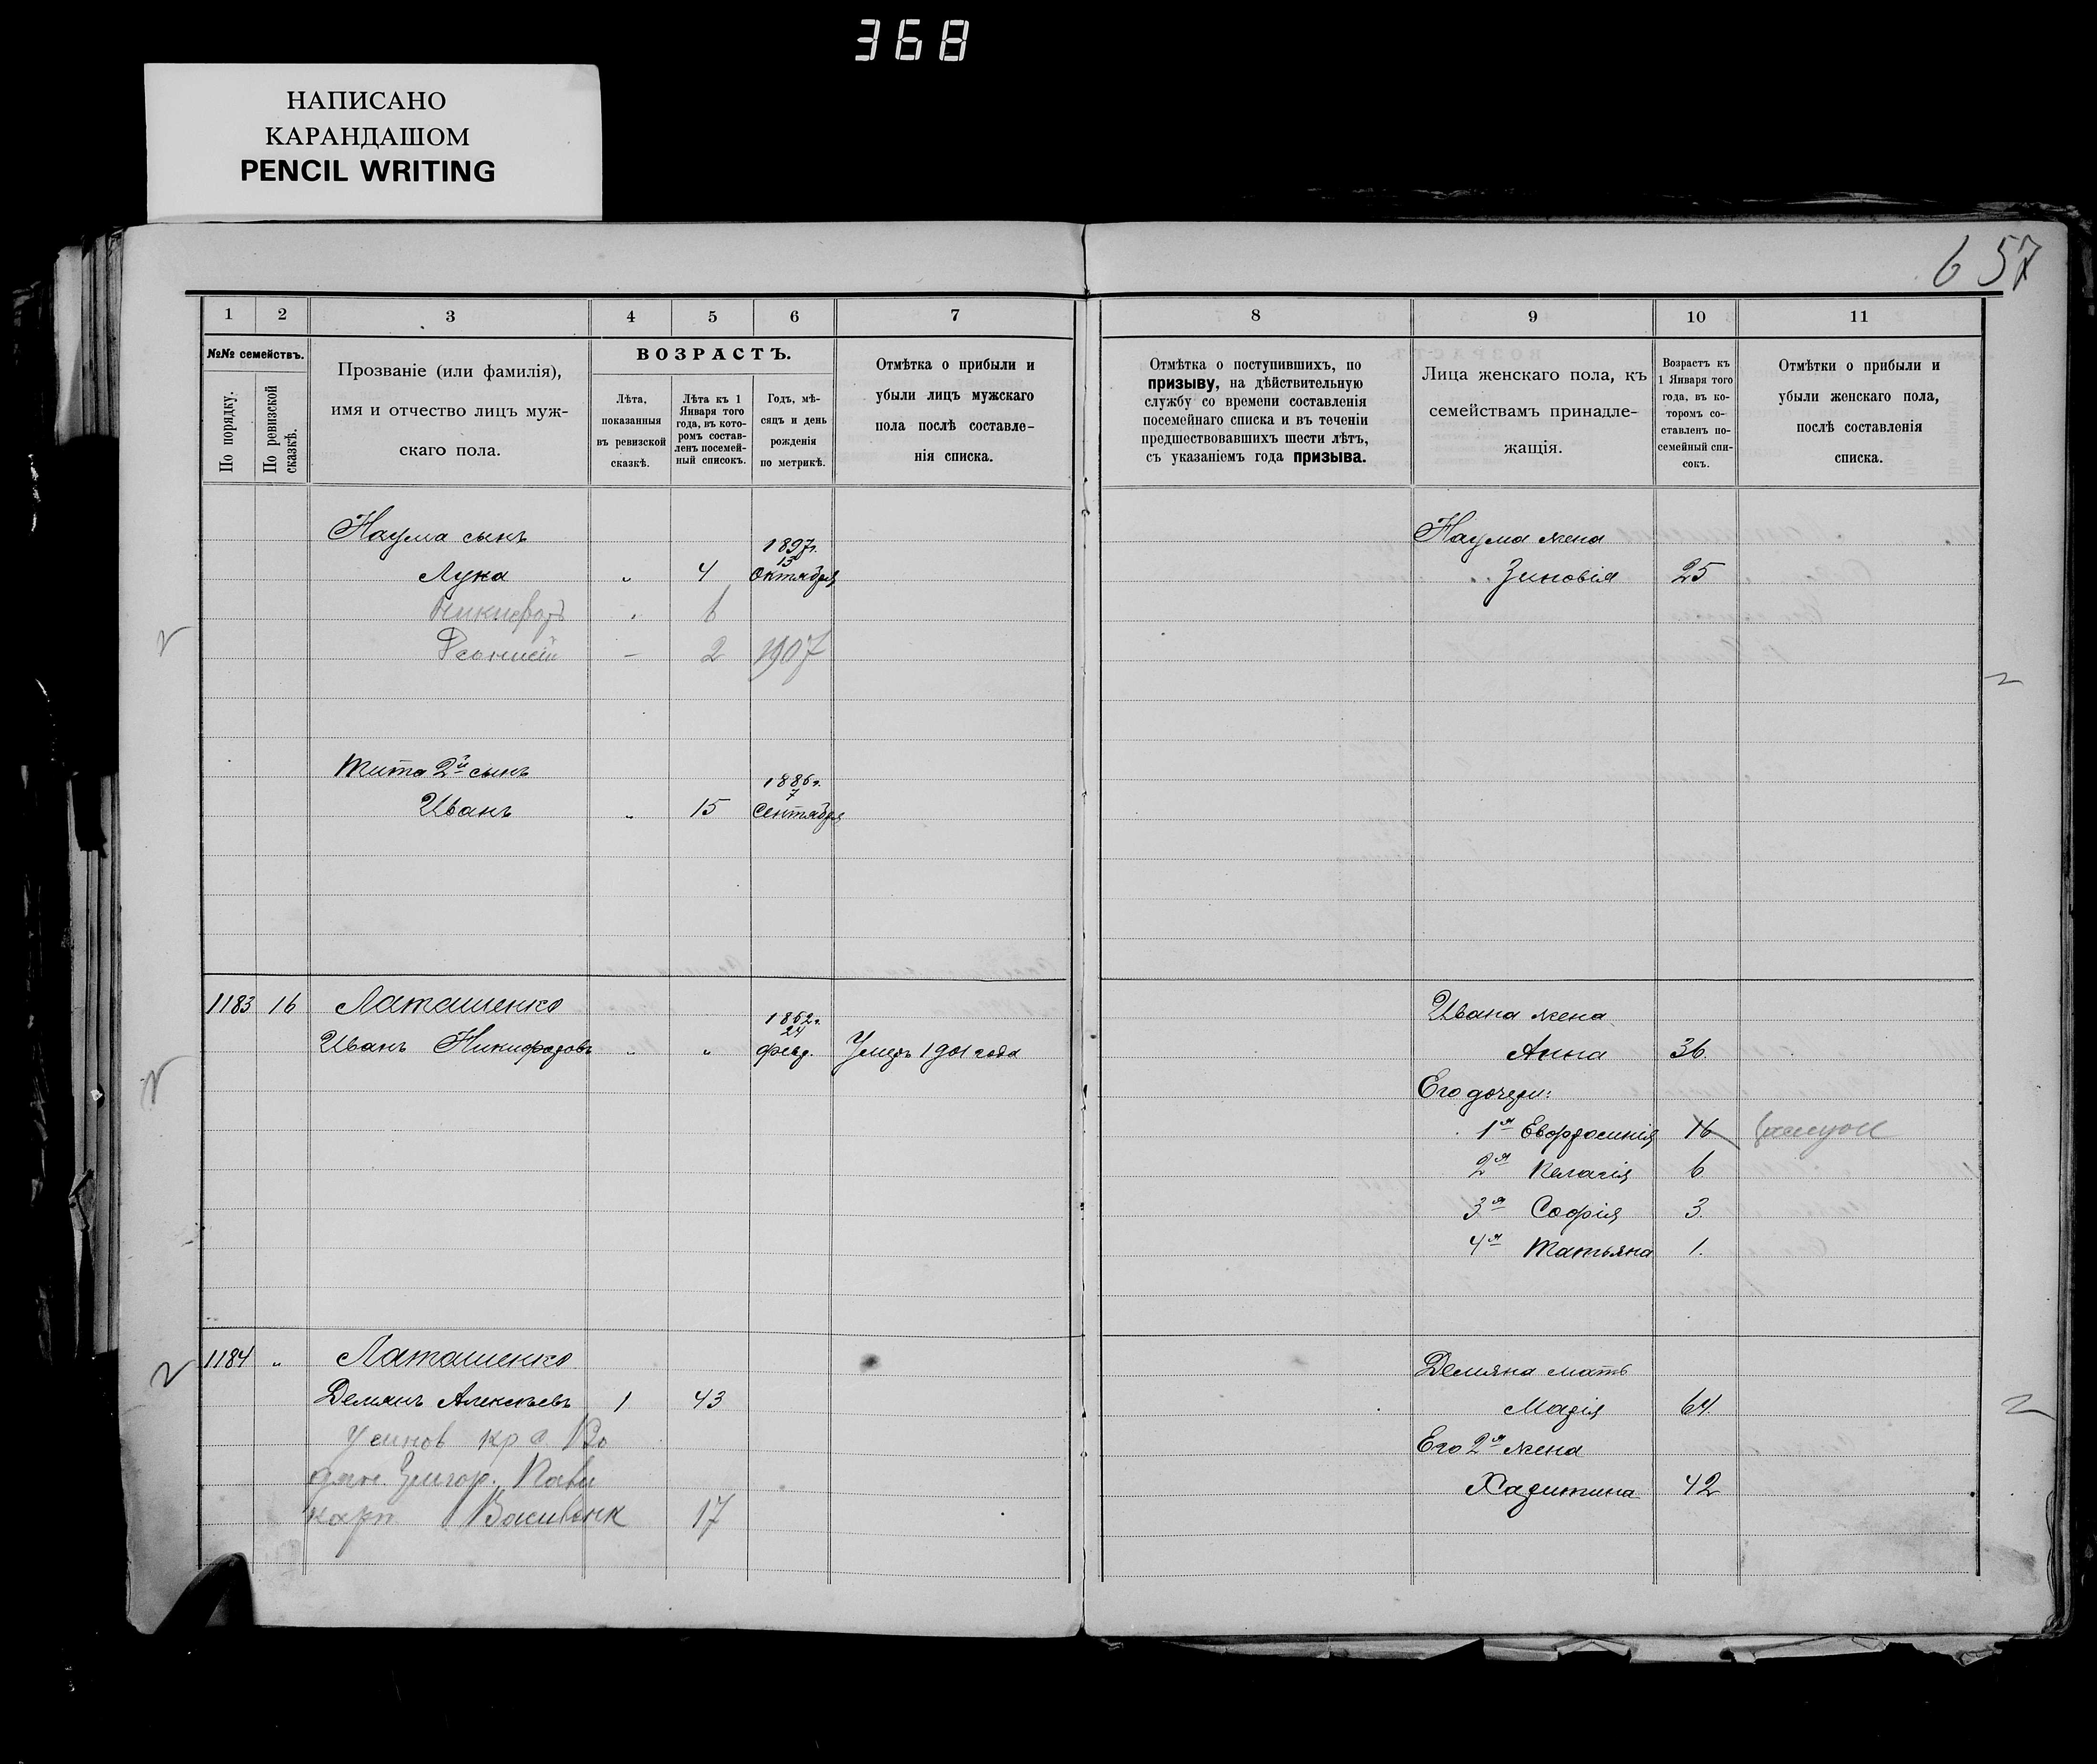 368
НАПИСАНО
КАРАНДАШОМ
PENCIL WRITING
657
1 2 3 4 5 6 7 8 9 10 11
№№ семействъ.
По порядку.
По ревизской сказкѣ.
Прозваніе (или фамилія),
имя и отчество лицъ муж-
скаго пола.
ВОЗРАСТЪ.
Лѣта,
показанныя
въ ревизской
сказкѣ.
Лѣта къ 1
Января того
года, въ кото-
ромъ состав-
ленъ посемей-
ный списокъ.
Годъ, мѣ-
сяцъ и день
рожденія
по метрикѣ.
Отмѣтка о прибыли и
убыли лицъ мужскаго
пола послѣ составле-
нія списка.
Отмѣтка о поступившихъ, по
призыву, на дѣйствительную
службу со времени составленія
посемейнаго списка и въ теченіи
предшествовавшихъ шести лѣтъ,
съ указаніемъ года призыва.
Лица женскаго пола, къ
семействамъ принадле-
жащія.
Возрастъ къ
1 Января того
года, въ ко-
торомъ со-
ставленъ по-
семейный спи-
сокъ.
Отмѣтки о прибыли и
убыли женскаго пола,
послѣ составленія
списка.
Наума сынъ
1897г.
15
Лука " 4 Октября
6
2 1907
Наума жена
Зиновія 25
Тита 2й сынъ
1886г.
7
Иванъ " 15 Сентября
1183 16 Латашенко
1852г.
24
Иванъ Никифоровъ " " февр. Умеръ 1901 года
Ивана жена
Анна 36.
Его дочери:
1я Евфросинія 16
2я Пелагія 6
3я Софія 3.
4я Татьяна 1.
1184 " Латашенко
Демянъ Алексѣевъ 1 43
17
Демяна мать
Марія 64.
Его 2я жена
Харитина 42